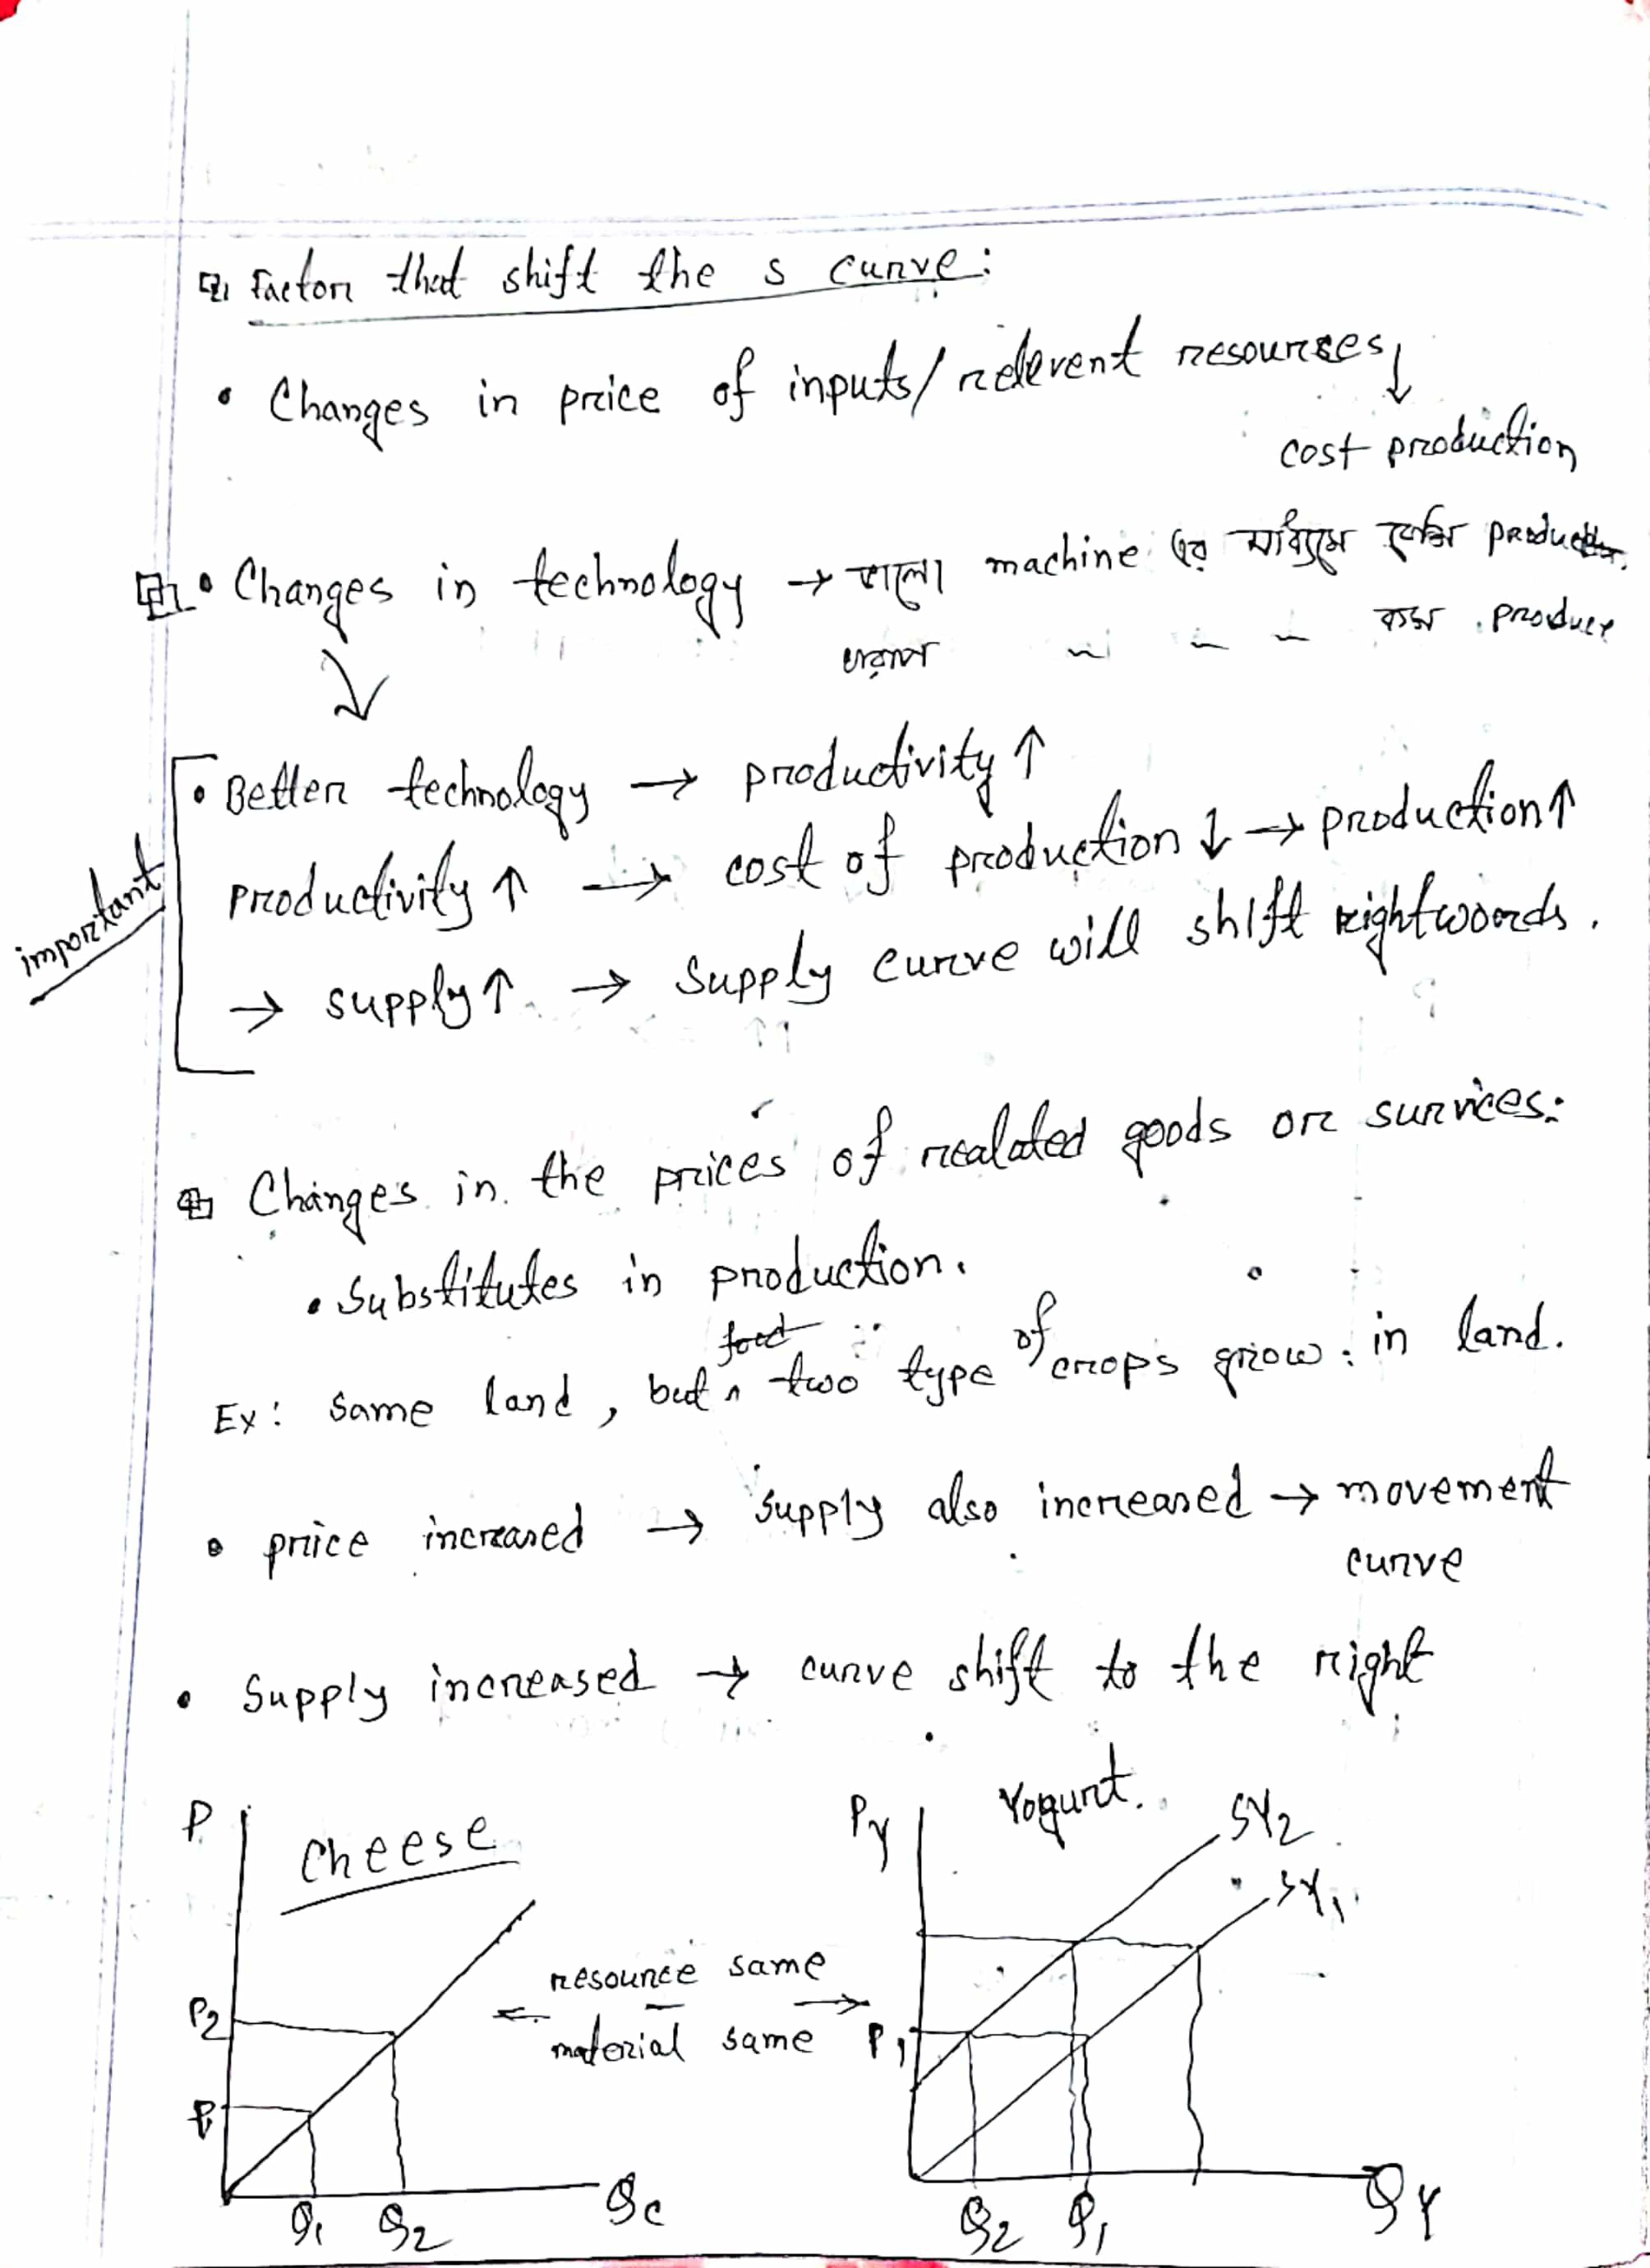 Factor that shift the s curve:
• Changes in price of inputs/relevent resources
↓
cost production
• Changes in technology → ভালো machine এর মাধ্যমে বেশি product
খারাপ " " " কম product
↓
• Better technology → productivity ↑
productivity ↑ → cost of production ↓ → production ↑
→ supply ↑ → supply curve will shift rightwords.
important
Changes in the prices of realated goods or survices:
• Substitutes in production.
Ex: same land, but two type of crops grow in land.
• price increased → supply also increased → movement
curve
• Supply increased → curve shift to the right
P Cheese
P2
P1
Q1 Q2 Qc
resource same
material same
Py Yogurt. SY2
SY1
P1
Q2 Q1 QY